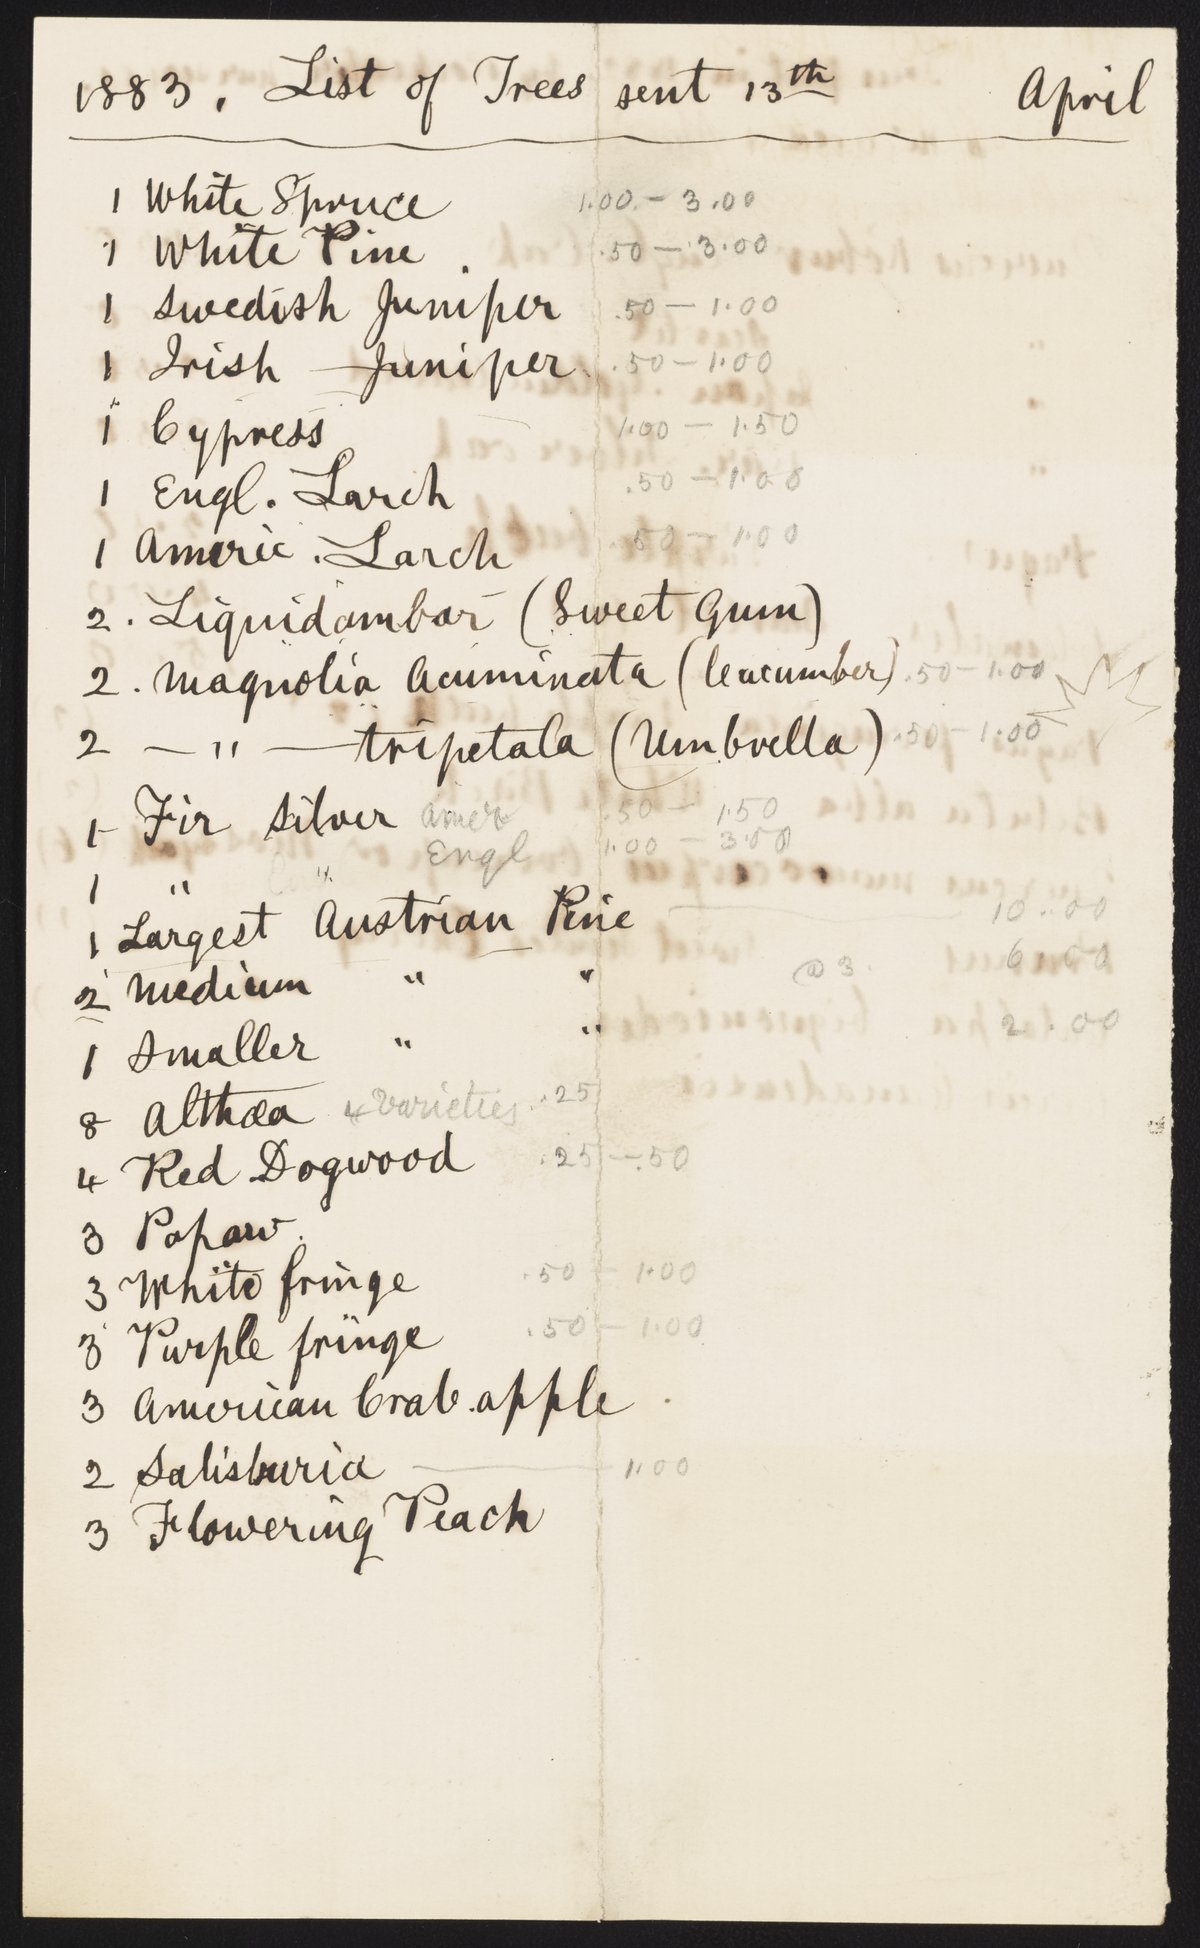 1883. List of Trees sent 13th April
1 White Spruce 1.00 - 3.00
1 White Pine .50 - 3.00
1 Swedish Juniper .50 - 1.00
1 Irish Juniper .50 - 1.00
1 Cypress 1.00 - 1.50
1 Engl. Larch .50 - 1.00
1 Americ. Larch .50 - 1.00
2. Liquidambar (Sweet Gum)
2. Magnolia Acuminata (Ceucumber) .50 - 1.00
2 — " — tripetala (Umbrella) .50 - 1.00
1 Fir Silver Amer .50 - 1.50
1 " " Engl 1.00 - 3.00
1 Largest Austrian Pine 10.00
2 Medium " " @ 3. 6.00
1 Smaller " " 2.00
8 Althæa 4 Varieties .25
4 Red Dogwood .25 - .50
3 Papaw.
3 White fringe .50 - 1.00
3 Purple fringe .50 - 1.00
3 American Crab.apple
2 Salisburia — 1.00
3 Flowering Peach